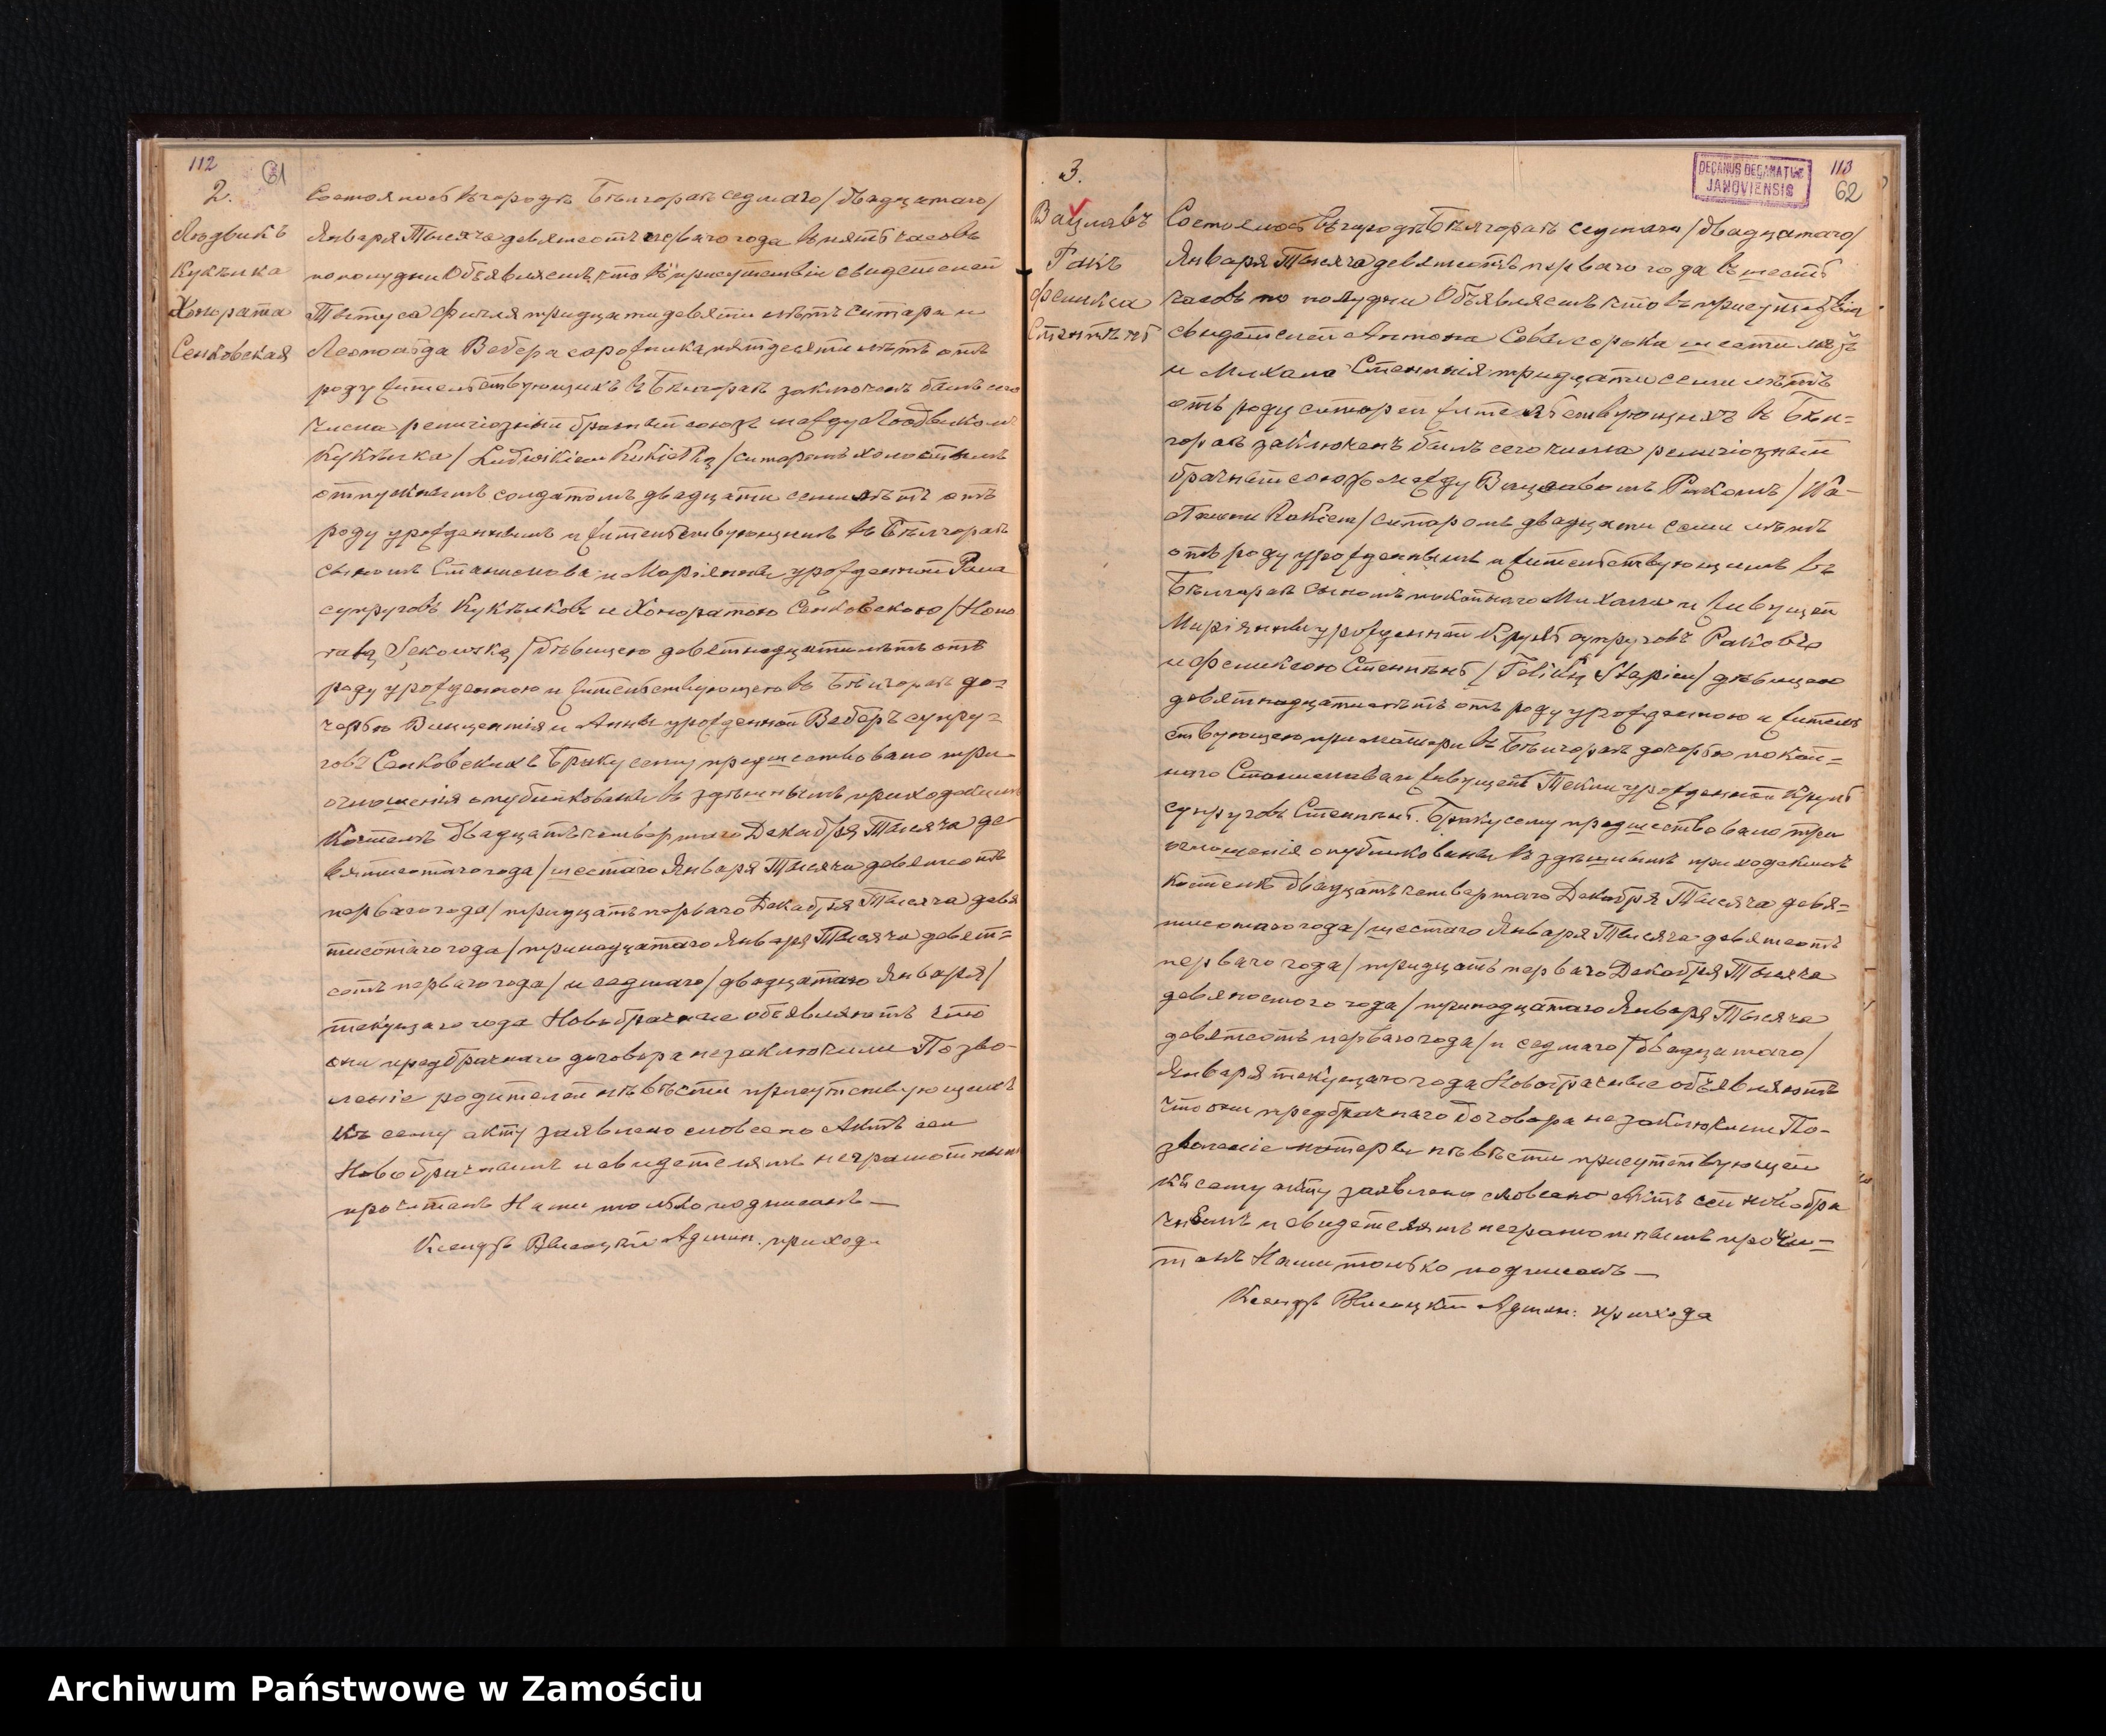 112
61
2.
Людвикъ
Кукѣлка
Хонората
Сенковская
Состоялось въ городѣ Бѣлгораѣ седмаго/двадцатаго/
Января Тысяча девятьсотъ перваго года въ пять часовъ
пополудни Объявляемъ, что въ присутствіи свидетелей
тридцати девяти лѣтъ ситара и
Леопольда Вебера сапожника, пятдесяти лѣтъ отъ
роду жительствующихъ въ Бѣлгораѣ заключенъ былъ сего
числа религіозный брачный союзъ между Людвикомъ
Кукѣлка/Ludwikiem Kukiełką/ситаромъ холостымъ
отпускнымъ солдатомъ двадцати семи лѣтъ отъ
роду урожденнымъ и жительствующимъ въ Бѣлгораѣ
сыномъ Станислава и Маріянны урожденной
супруговъ Кукѣлковъ и Хоноратою Сенковскою/Hono
ratą Sękowską/дѣвицею девятнадцати лѣтъ отъ
роду урожденною и жительствующею въ Бѣлгораѣ до=
черью Винцентія и Анны урожденной Веберъ супру=
говъ Сенковскихъ Браку сему предшествовало три
оглашенія опубликованы въ здѣшнымъ приходскимъ
Костелѣ двадцать четвертаго Декабря Тысяча де
вятисотаго года/шестаго Января Тысяча девятьсотъ
перваго года/тридцать перваго Декабря Тысяча девя
тисотаго года/тринадцатаго Января Тысяча девят=
сотъ перваго года/и седмаго/двадцатаго Января/
текущаго года Новобрачные объявляютъ что
они предбрачнаго договора не заключили Позво-
леніе родителей невѣсты присутствующихъ
къ сему акту заявлено словесно Актъ сей
Новобрачнымъ и свидетелямъ неграмотнымъ
прочитанъ Нами только подписанъ —
Ксендзъ Высоцкій Админ. прихода
3.
Вацлавъ
Ракъ
Феликса
Стемпѣнь
DECANUS DECANATUS
JANOVIENSIS
113
62
Состоялось въ городѣ Бѣлгораѣ седмаго/двадцатаго/
Января Тысяча девятьсотъ перваго года въ шесть
часовъ по полудни Объявляемъ что въ присутствіи
свидетелей Антона
и Михала Стемпня тридцати семи лѣтъ
отъ роду ситареи жительствующихъ въ Бѣл=
гораѣ заключенъ былъ сего числа религіозный
брачный союзъ между Вацлавомъ Ракомъ/Wa-
cławem Rakiem/ситаромъ двадцати семи лѣтъ
отъ роду урожденнымъ и жительствующимъ въ
Бѣлгораѣ сыномъ покойнаго Михала и живущей
Маріянны урожденной Крукъ супруговъ Раковъ
и Феликсою Стемпѣнь/Feliksą Stępień/дѣвицею
девятнадцати лѣтъ отъ роду урожденною и житель
ствующею при матери въ Бѣлгораѣ дочерью покой=
наго Станислава и живущей Теклы урожденной
супруговъ Стемпѣнь. Браку сему предшествовало три
оглашенія опубликованы въ здѣшнымъ приходскимъ
костелѣ двадцать четвертаго Декабря Тысяча девя=
тисотаго года/шестаго Января Тысяча девятьсотъ
перваго года/тридцать перваго Декабря Тысяча
девятисотаго года/тринадцатаго Января Тысяча
девятьсотъ перваго года/и седмаго/двадцатаго/
Января текущаго года Новобрачные объявляютъ
что они предбрачнаго договора не заключили По-
зволеніе матери невѣсты присутствующей
къ сему акту заявлено словесно Актъ сей новобра
чнымъ и свидетелямъ неграмотнымъ прочи=
танъ Нами только подписанъ —
Ксендзъ Высоцкій Админ: прихода
Archiwum Państwowe w Zamościu